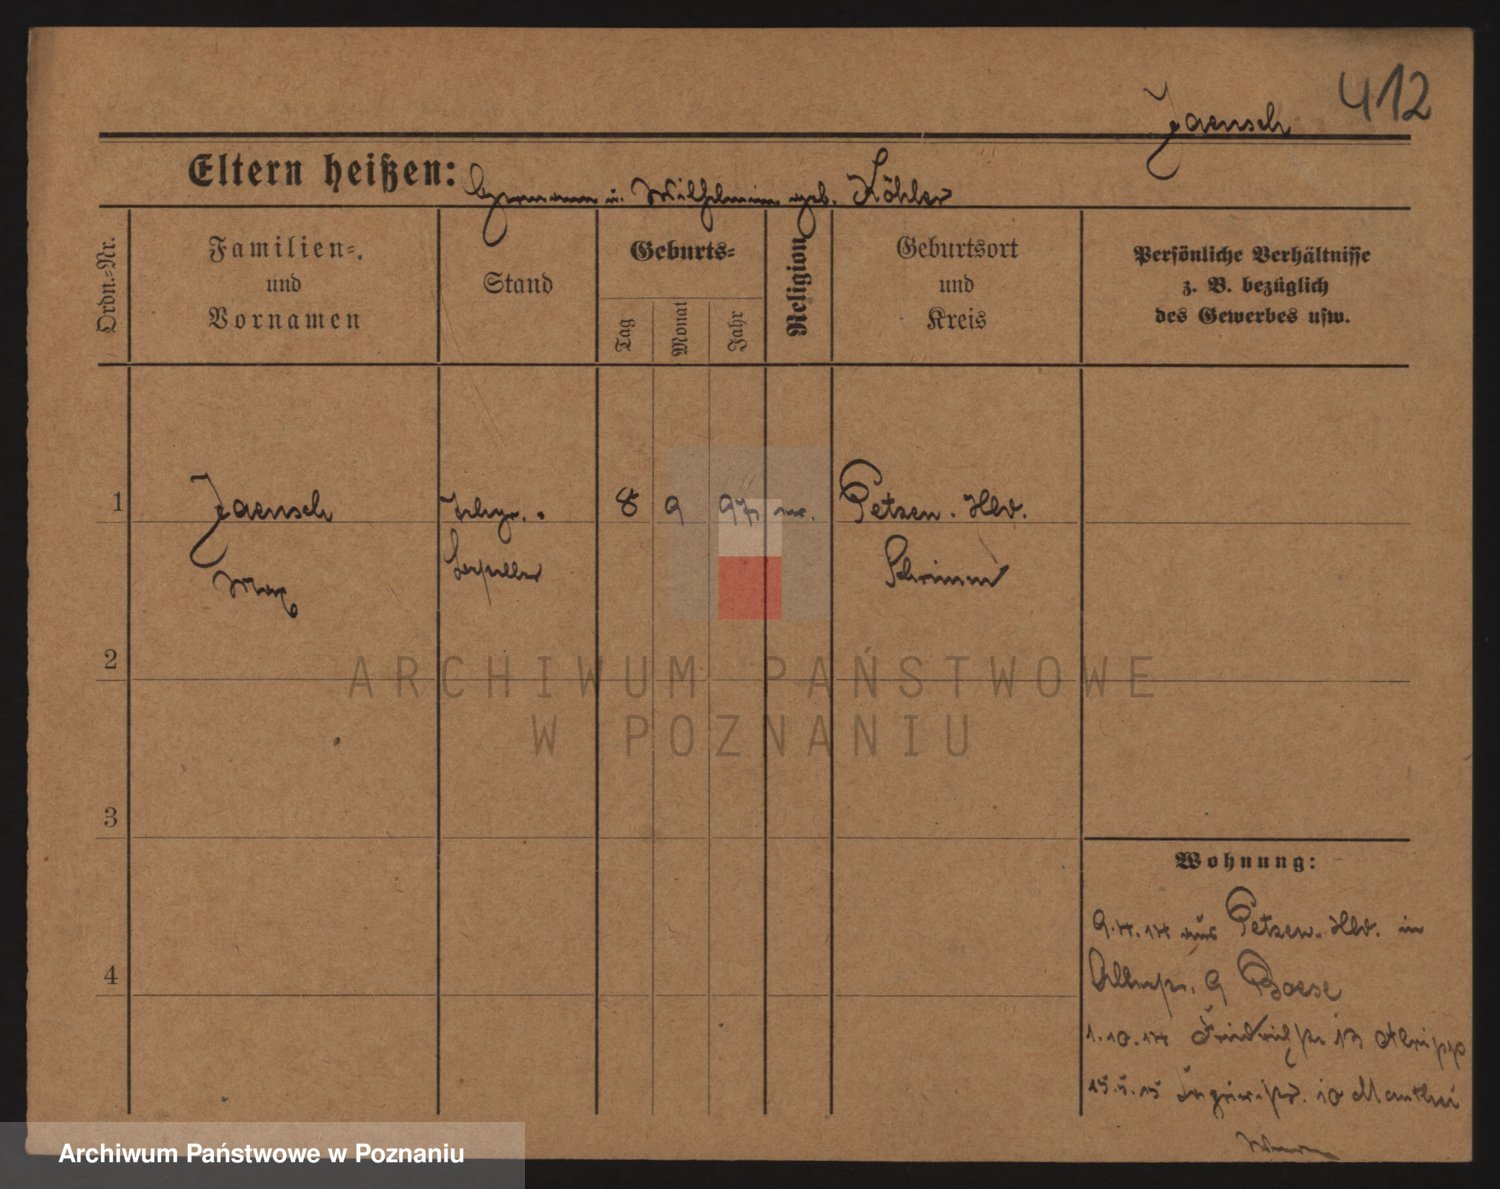 412
Jaensch
Eltern heißen: Hermann u. Wilhelmine geb. Köhler
Ordn.-Nr.
Familien-
und
Vornamen
Stand
Geburts-
Tag
Monat
Jahr
Religion
Geburtsort
und
Kreis
Persönliche Verhältnisse
z. B. bezüglich
des Gewerbes usw.
1
Jaensch
Max
8 9 97
Petzen. Hld.
Schrimm
2
ARCHIWUM PAŃSTWOWE
W POZNANIU
3
4
Wohnung:
9.4.14 aus Petzen. Hld. in
9 Boese
1.10.14 Friedrichstr 13
15.5.15 10 Manthei
Archiwum Państwowe w Poznaniu